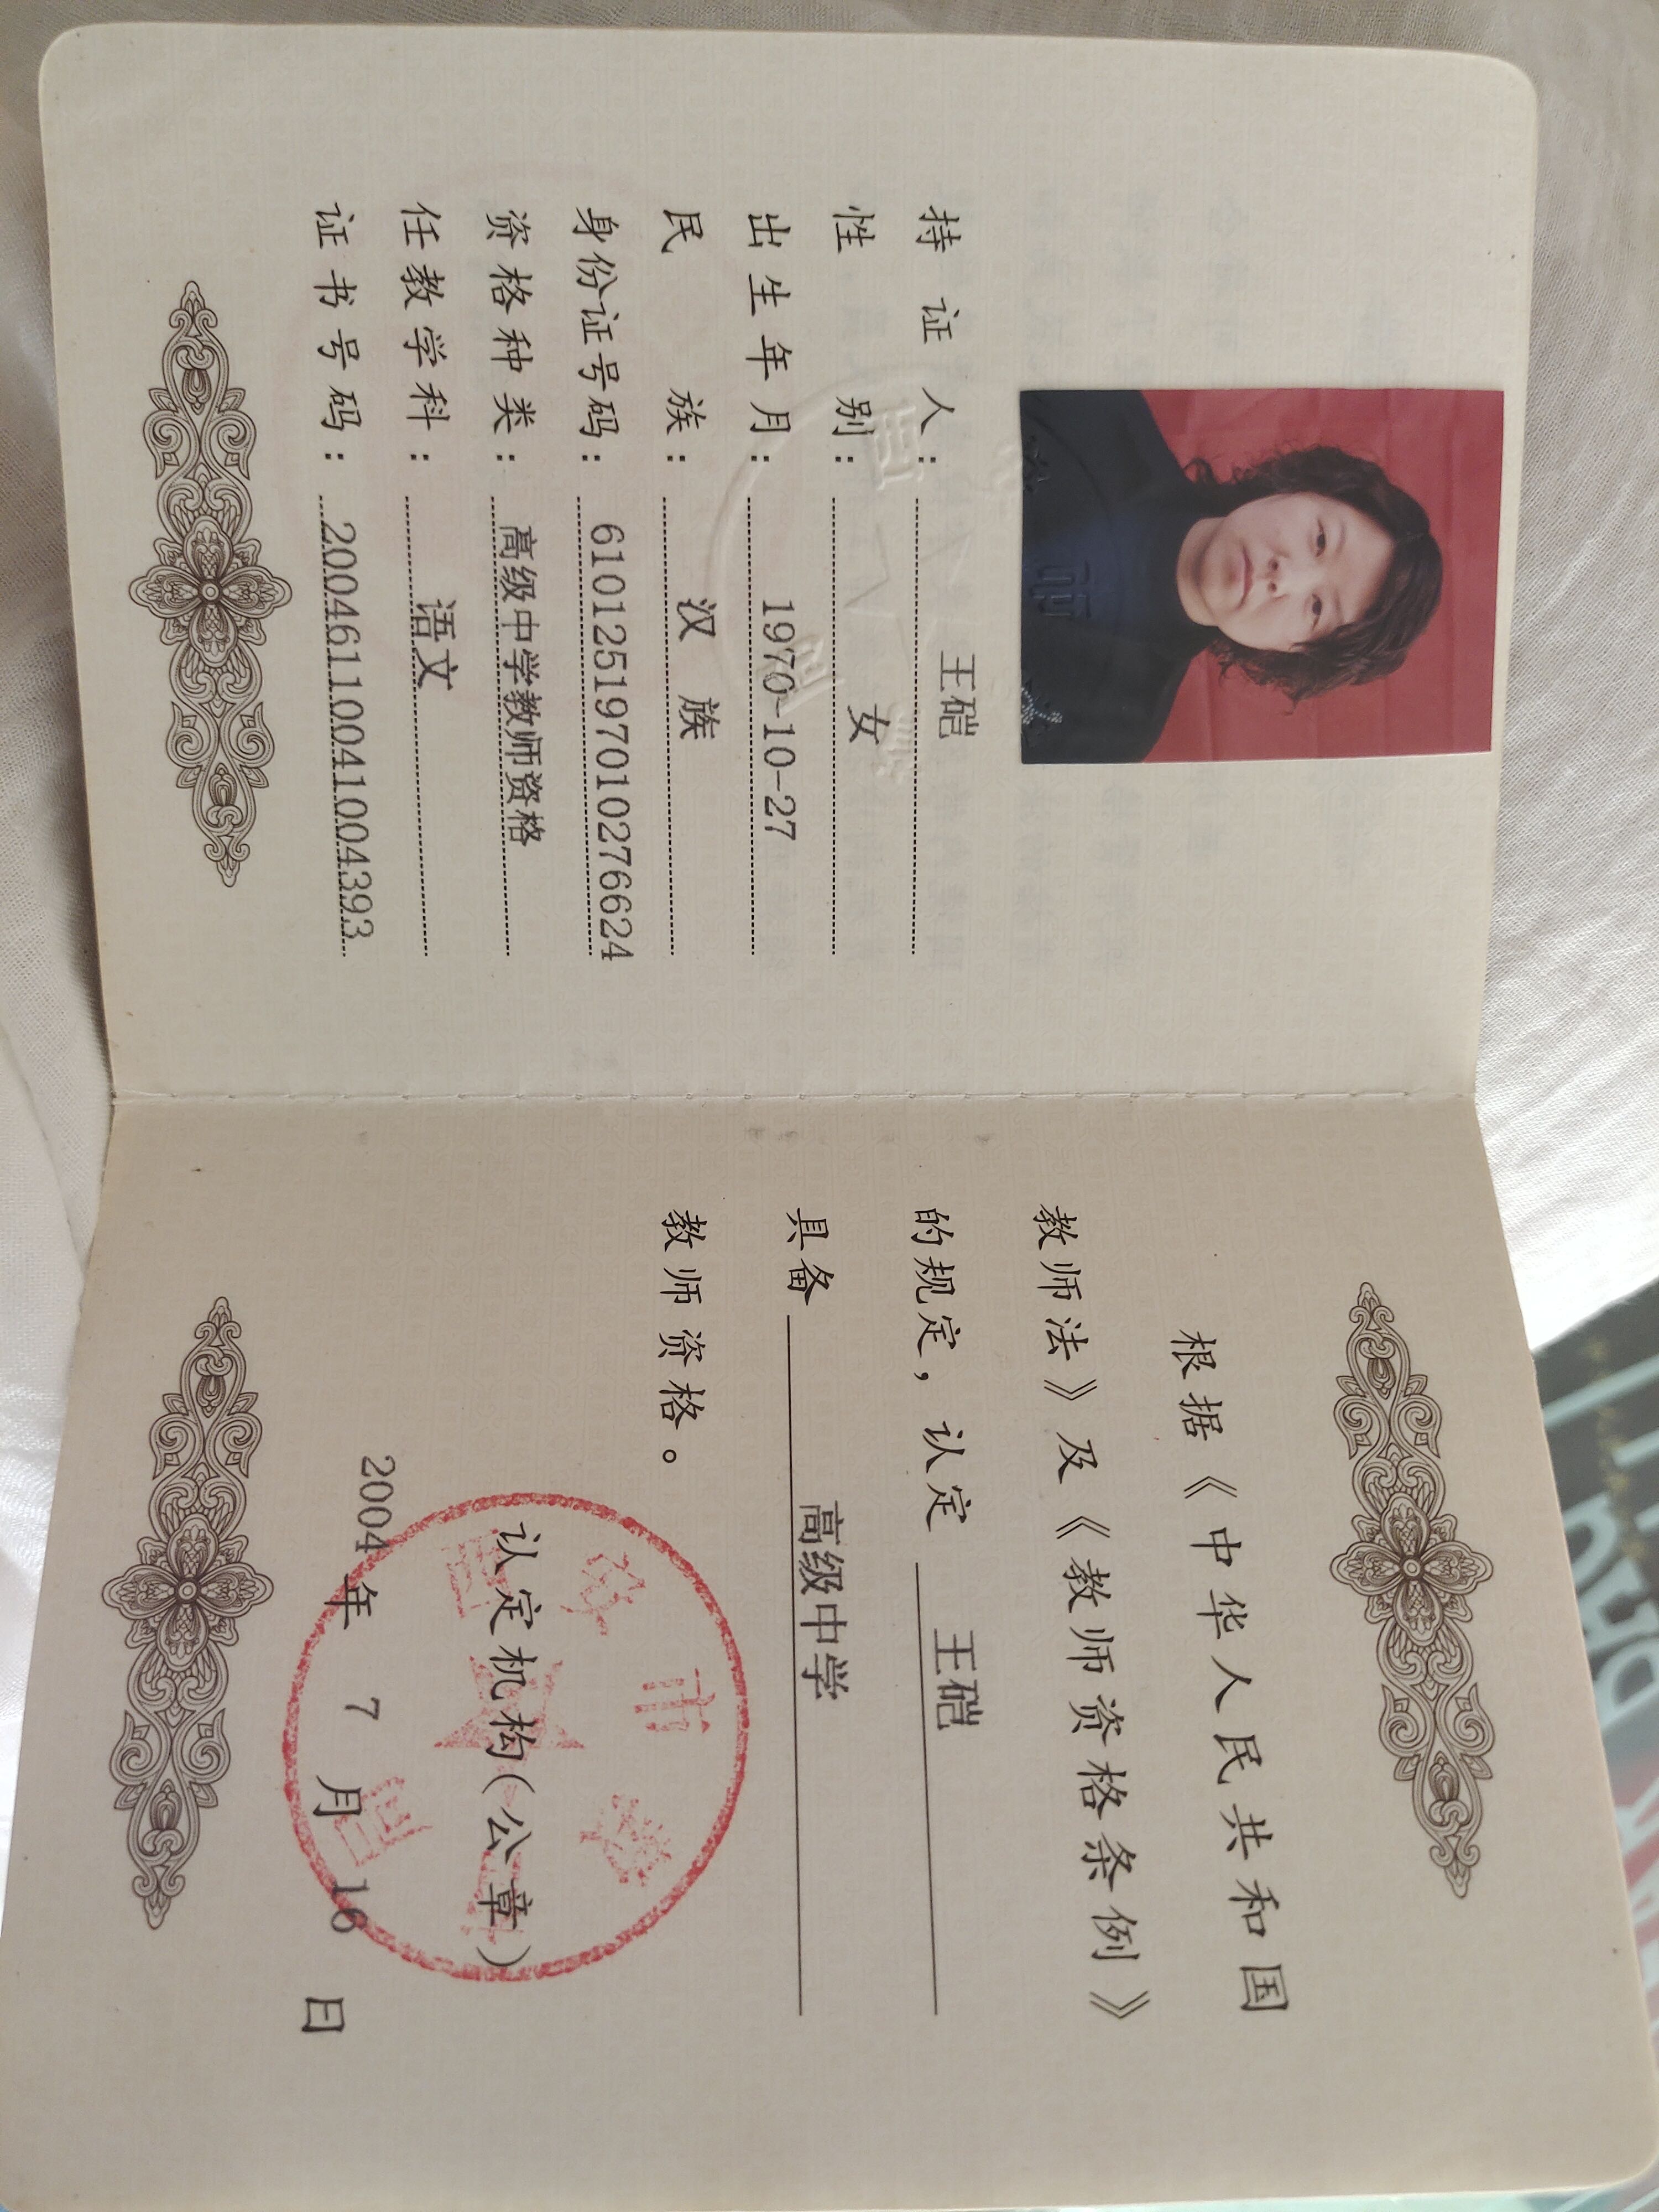 持证人：王硙
性别：女
出生年月：1970-10-27
民族：汉族
身份证号码：610125197010276624
资格种类：高级中学教师资格
任教学科：语文
证书号码：20046110041004393
根据《中华人民共和国
教师法》及《教师资格条例》
的规定，认定 王硙
具备 高级中学
教师资格。
认定机构(公章)
2004年7月16日